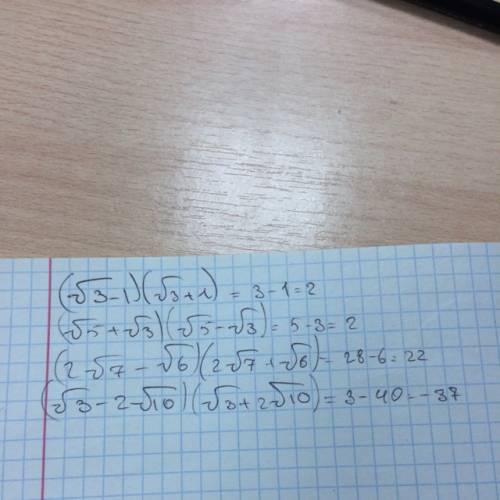 (√3-1)(√3+1) = 3-1=2
(√5+√3)(√5-√3)= 5-3=2
(2√7-√6)(2√7+√6)= 28-6=22
(√3-2√10)(√3+2√10)= 3-40=-37